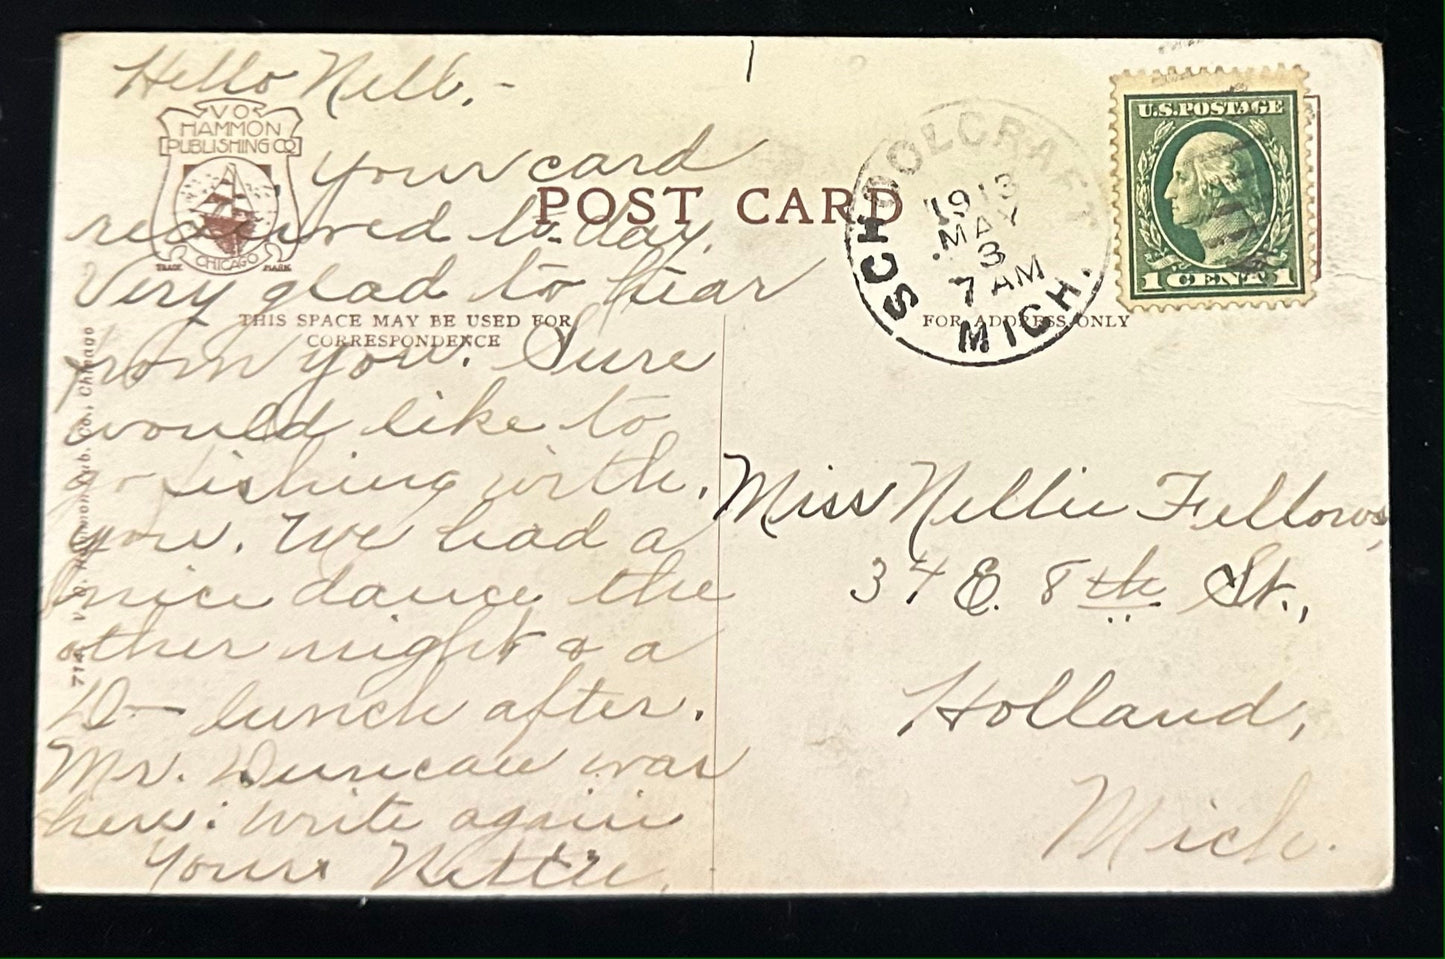 Hello Nell,-
V O
HAMMON
PUBLISHING CO
CHICAGO
TRADE MARK
your card
POST CARD
received to-day.
Very glad to hear
THIS SPACE MAY BE USED FOR
CORRESPONDENCE
from you. Sure
would like to
go fishing with
you. We had a
nice dance the
other night & a
D— lunch after.
Mr. Duncan was
here. Write again
Yours Nettie.
714 V. O. Hammon Pub. Co., Chicago
SCHOOLCRAFT
1913
MAY
3
7 AM
MICH.
U.S. POSTAGE
1 CENT 1
FOR ADDRESS ONLY
Miss Nellie Fellows,
34 E. 8th St.,
Holland,
Mich.